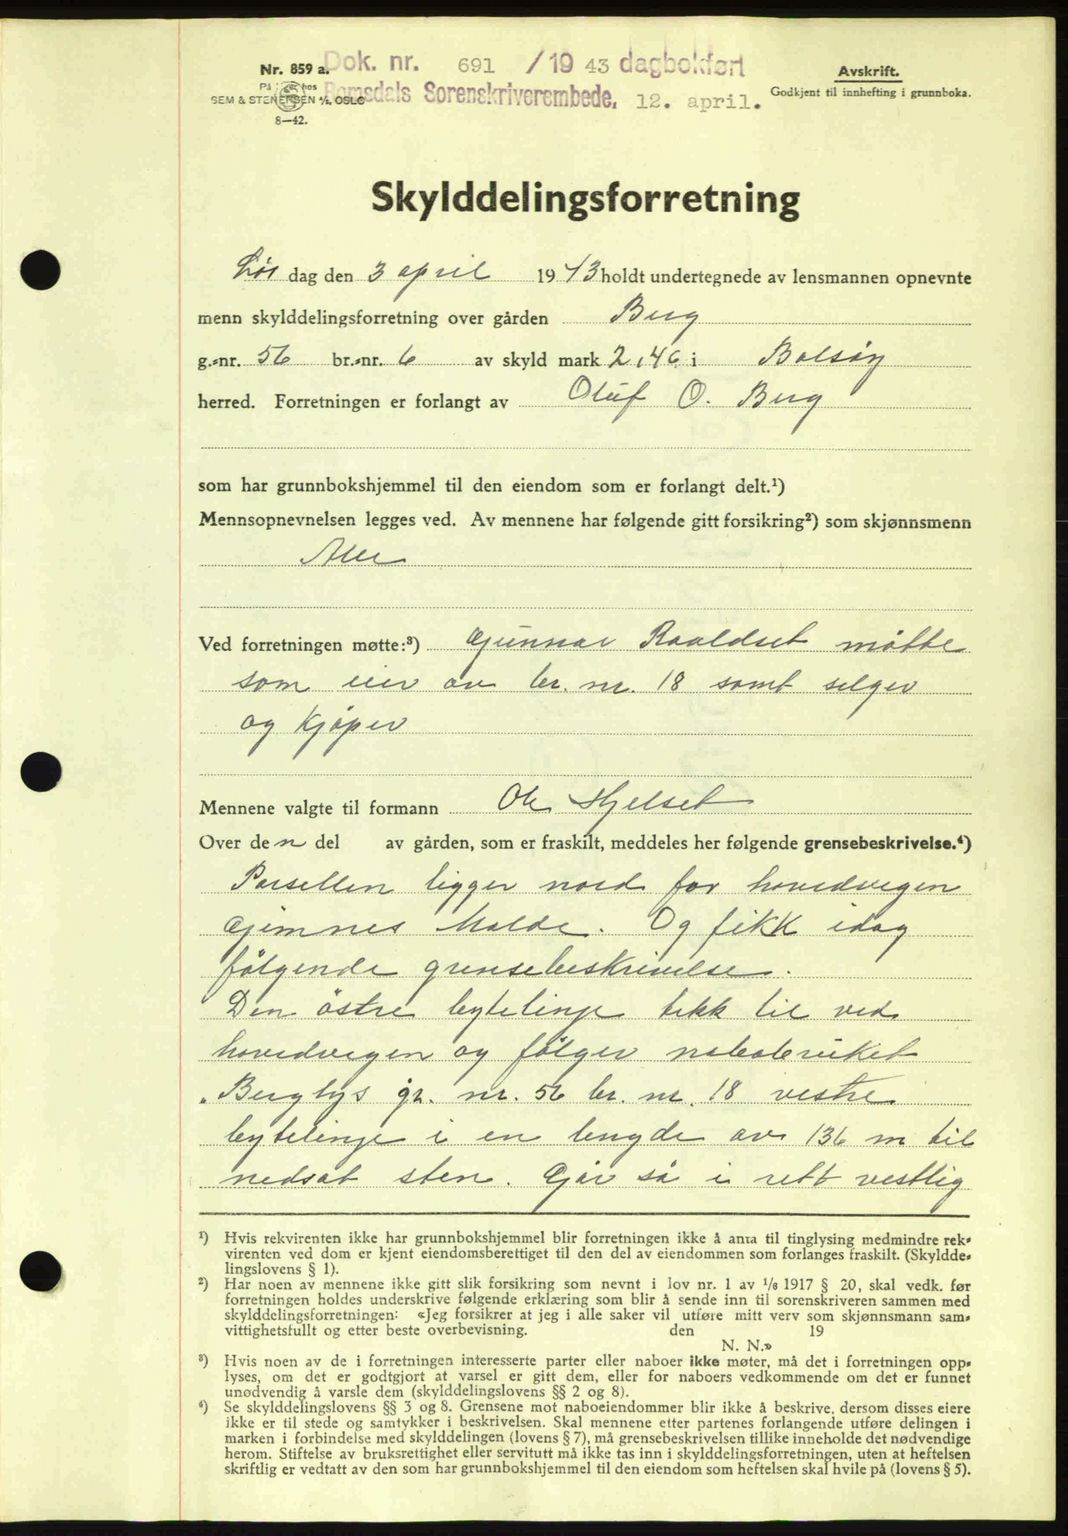 Nr. 859 a. Dok. nr. 691 /19 43 dagbokført
Romsdals Sorenskriverembede, 12. april.
På hos
SEM & STENERSEN A/S, OSLO
8—42.
Avskrift.
Godkjent til innhefting i grunnboka.
Skylddelingsforretning
Lør dag den 3 april 1943 holdt undertegnede av lensmannen opnevnte
menn skylddelingsforretning over gården Berg
g.-nr. 56 br.-nr. 6 av skyld mark 2,46 i Bolsøy
herred. Forretningen er forlangt av Oluf O. Berg
som har grunnbokshjemmel til den eiendom som er forlangt delt.¹)
Mennsopnevnelsen legges ved. Av mennene har følgende gitt forsikring²) som skjønnsmenn
Alle
Ved forretningen møtte:³) Gunnar Raaldset møtte
som eier av br. nr. 18 samt selger
og Kjøper
Mennene valgte til formann Ole Hjelset
Over den del av gården, som er fraskilt, meddeles her følgende grensebeskrivelse.⁴)
Parsellen ligger nord for hovedvegen
Gjemnes Molde. Og fikk idag
følgende grensebeskrivelse.
Den østre bytelinje tekk til ved
hovedvegen og følger nabobruket
"Berglys gr. nr. 56 br. nr. 18 vestre
bytelinje i en lengde av 136 m til
nedsat sten. Går så i rett vestlig
¹) Hvis rekvirenten ikke har grunnbokshjemmel blir forretningen ikke å anta til tinglysing medmindre rek-
virenten ved dom er kjent eiendomsberettiget til den del av eiendommen som forlanges fraskilt. (Skyldde-
lingslovens § 1).
²) Har noen av mennene ikke gitt slik forsikring som nevnt i lov nr. 1 av 1/6 1917 § 20, skal vedk. før
forretningen holdes underskrive følgende erklæring som blir å sende inn til sorenskriveren sammen med
skylddelingsforretningen: «Jeg forsikrer at jeg i alle saker vil utføre mitt verv som skjønnsmann sam-
vittighetsfullt og etter beste overbevisning. den 19
N. N.»
³) Hvis noen av de i forretningen interesserte parter eller naboer ikke møter, må det i forretningen opp-
lyses, om det er godtgjort at varsel er gitt dem, eller for naboers vedkommende om det er funnet
unødvendig å varsle dem (skylddelingslovens §§ 2 og 8).
⁴) Se skylddelingslovens §§ 3 og 8. Grensene mot naboeiendommer blir ikke å beskrive, dersom disses eiere
ikke er til stede og samtykker i beskrivelsen. Skal mennene etter partenes forlangende utføre delingen i
marken i forbindelse med skylddelingen (lovens § 7), må grensebeskrivelsen tillike inneholde det nødvendige
herom. Stiftelse av bruksrettighet eller servitutt må ikke tas inn i skylddelingsforretningen, uten at heftelsen
skriftlig er vedtatt av den som har grunnbokshjemmel til den eiendom som heftelsen skal hvile på (lovens § 5).